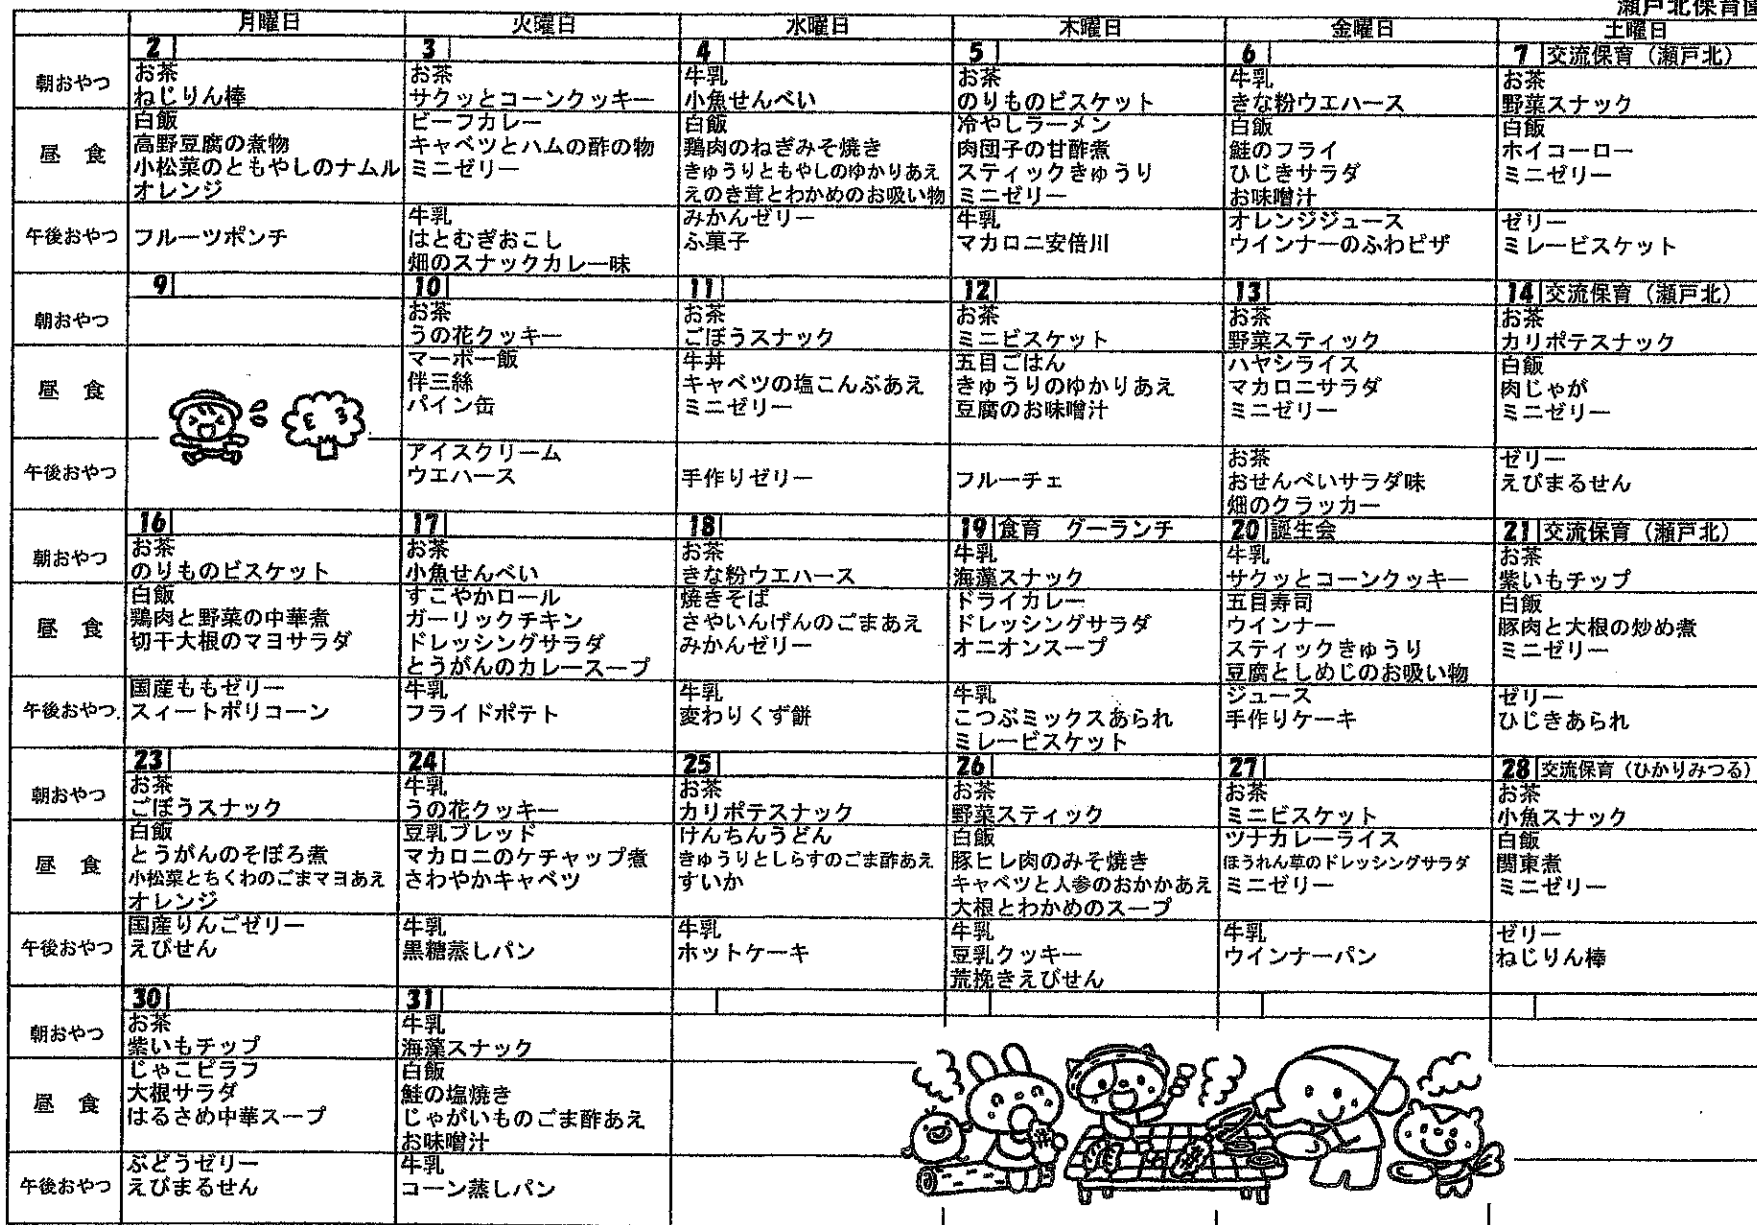 瀬戸北保育園
月曜日 火曜日 水曜日 木曜日 金曜日 土曜日
2 3 4 5 6 7 交流保育（瀬戸北）
朝おやつ
お茶
ねじりん棒
お茶
サクッとコーンクッキー
牛乳
小魚せんべい
お茶
のりものビスケット
牛乳
きな粉ウエハース
お茶
野菜スナック
昼 食
白飯
高野豆腐の煮物
小松菜のともやしのナムル
オレンジ
ビーフカレー
キャベツとハムの酢の物
ミニゼリー
白飯
鶏肉のねぎみそ焼き
きゅうりともやしのゆかりあえ
えのき茸とわかめのお吸い物
冷やしラーメン
肉団子の甘酢煮
スティックきゅうり
ミニゼリー
白飯
鮭のフライ
ひじきサラダ
お味噌汁
白飯
ホイコーロー
ミニゼリー
午後おやつ
フルーツポンチ
牛乳
はとむぎおこし
畑のスナックカレー味
みかんゼリー
ふ菓子
牛乳
マカロニ安倍川
オレンジジュース
ウインナーのふわピザ
ゼリー
ミレービスケット
9 10 11 12 13 14 交流保育（瀬戸北）
朝おやつ
お茶
うの花クッキー
お茶
ごぼうスナック
お茶
ミニビスケット
お茶
野菜スティック
お茶
カリポテスナック
昼 食
マーボー飯
伴三絲
パイン缶
牛丼
キャベツの塩こんぶあえ
ミニゼリー
五目ごはん
きゅうりのゆかりあえ
豆腐のお味噌汁
ハヤシライス
マカロニサラダ
ミニゼリー
白飯
肉じゃが
ミニゼリー
午後おやつ
アイスクリーム
ウエハース
手作りゼリー
フルーチェ
お茶
おせんべいサラダ味
畑のクラッカー
ゼリー
えびまるせん
16 17 18 19 食育 グーランチ 20 誕生会 21 交流保育（瀬戸北）
朝おやつ
お茶
のりものビスケット
お茶
小魚せんべい
お茶
きな粉ウエハース
牛乳
海藻スナック
牛乳
サクッとコーンクッキー
お茶
紫いもチップ
昼 食
白飯
鶏肉と野菜の中華煮
切干大根のマヨサラダ
すこやかロール
ガーリックチキン
ドレッシングサラダ
とうがんのカレースープ
焼きそば
さやいんげんのごまあえ
みかんゼリー
ドライカレー
ドレッシングサラダ
オニオンスープ
五目寿司
ウインナー
スティックきゅうり
豆腐としめじのお吸い物
白飯
豚肉と大根の炒め煮
ミニゼリー
午後おやつ
国産ももゼリー
スィートポリコーン
牛乳
フライドポテト
牛乳
変わりくず餅
牛乳
こつぶミックスあられ
ミレービスケット
ジュース
手作りケーキ
ゼリー
ひじきあられ
23 24 25 26 27 28 交流保育（ひかりみつる）
朝おやつ
お茶
ごぼうスナック
牛乳
うの花クッキー
お茶
カリポテスナック
お茶
野菜スティック
お茶
ミニビスケット
お茶
小魚スナック
昼 食
白飯
とうがんのそぼろ煮
小松菜とちくわのごまマヨあえ
オレンジ
豆乳ブレッド
マカロニのケチャップ煮
さわやかキャベツ
けんちんうどん
きゅうりとしらすのごま酢あえ
すいか
白飯
豚ヒレ肉のみそ焼き
キャベツと人参のおかかあえ
大根とわかめのスープ
ツナカレーライス
ほうれん草のドレッシングサラダ
ミニゼリー
白飯
関東煮
ミニゼリー
午後おやつ
国産りんごゼリー
えびせん
牛乳
黒糖蒸しパン
牛乳
ホットケーキ
牛乳
豆乳クッキー
荒挽きえびせん
牛乳
ウインナーパン
ゼリー
ねじりん棒
30 31
朝おやつ
お茶
紫いもチップ
牛乳
海藻スナック
昼 食
じゃこピラフ
大根サラダ
はるさめ中華スープ
白飯
鮭の塩焼き
じゃがいものごま酢あえ
お味噌汁
午後おやつ
ぶどうゼリー
えびまるせん
牛乳
コーン蒸しパン